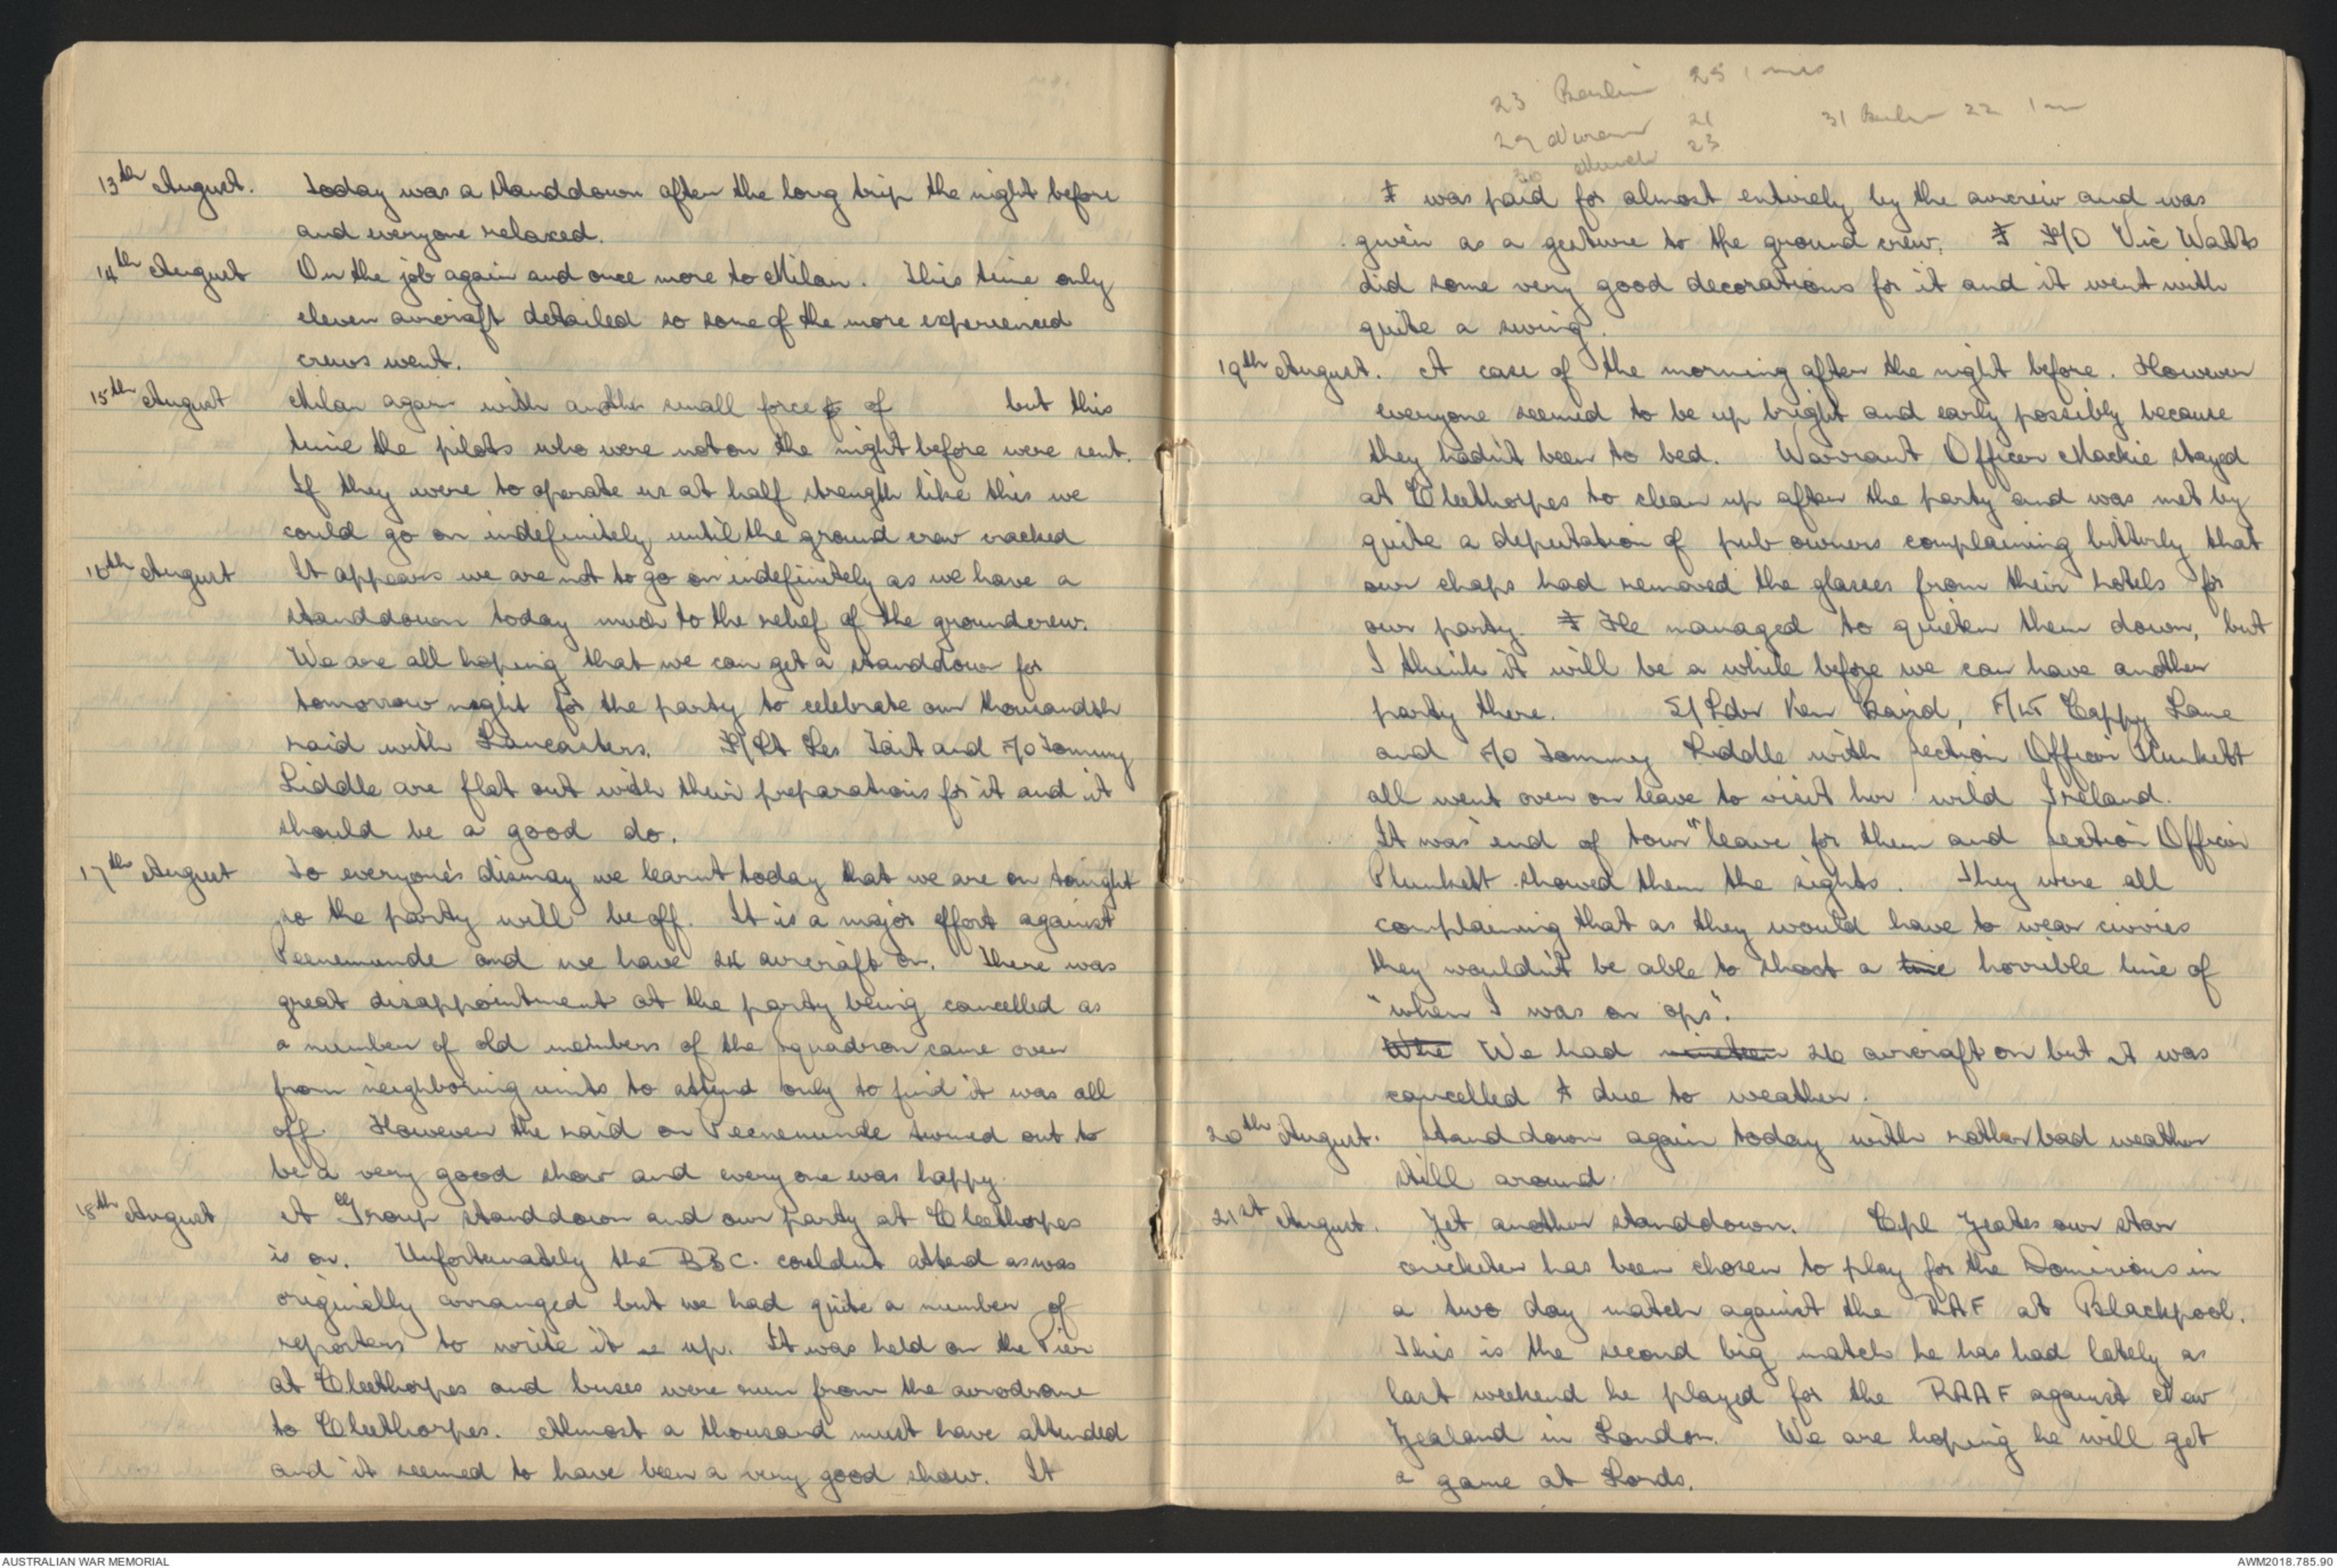 13th August. Today was a standdown after the long trip the night before
and everyone relaxed.
14th August On the job again and once more to Milan. This time only
eleven aircraft detailed so some of the more experienced
crews went.
15th August Milan again with another small force of but this
time the pilots who were not on the night before were sent.
If they were to operate us at half strength like this we
could go on indefinitely until the ground crew cracked
16th August It appears we are not to go on indefinitely as we have a
standdown today much to the relief of the groundcrew.
We are all hoping that we can get a standdown for
tomorrow night for the party to celebrate our thousandth
raid with Lancasters. F/Lt Les Tait and F/O Tommy
Liddle are flat out with their preparations for it and it
should be a good do.
17th August To everyone's dismay we learnt today that we are on tonight
so the party will be off. It is a major effort against
Peenemunde and we have 24 aircraft on. There was
great disappointment at the party being cancelled as
a number of old members of the squadron came over
from neighboring units to attend only to find it was all
off. However the raid on Peenemunde turned out to
be a very good show and everyone was happy.
18th August A Group standdown and our party at Cleethorpes
is on. Unfortunately the BBC. couldnt attend as was
originally arranged but we had quite a number of
reporters to write it up. It was held on the Pier
at Cleethorpes and buses were run from the aerodrome
to Cleethorpes. Almost a thousand must have attended
and it seemed to have been a very good show. It
23 Berlin 25
29 21
31 Berlin 22
30 23
was paid for almost entirely by the aircrew and was
given as a gesture to the ground crew. F/O Vic Watts
did some very good decorations for it and it went with
quite a swing.
19th August. A case of the morning after the night before. However
everyone seemed to be up bright and early possibly because
they hadn't been to bed. Warrant Officer Mackie stayed
at Cleethorpes to clean up after the party and was met by
quite a deputation of pub owners complaining bitterly that
our chaps had removed the glasses from their hotels for
our party. He managed to quieten them down, but
I think it will be a while before we can have another
party there. S/Ldr Ken Baird, F/Lt Cappy Lane
and F/O Tommy Liddle with Section Officer Plunkett
all went over on leave to visit her wild Ireland.
It was "end of tour" leave for them and Section Officer
Plunkett showed them the sights. They were all
complaining that as they would have to wear civvies
they wouldn't be able to shoot a line horrible line of
"when I was on ops".
We had nineteen 26 aircraft on but it was
cancelled due to weather.
20th August. Stand down again today with rather bad weather
still around.
21st August. Yet another standdown. Cpl Yeates our star
cricketer has been chosen to play for the Dominions in
a two day match against the RAF at Blackpool.
This is the second big match he has had lately as
last weekend he played for the RAAF against New
Zealand in London. We are hoping he will get
a game at Lords.
AUSTRALIAN WAR MEMORIAL
AWM2018.785.90